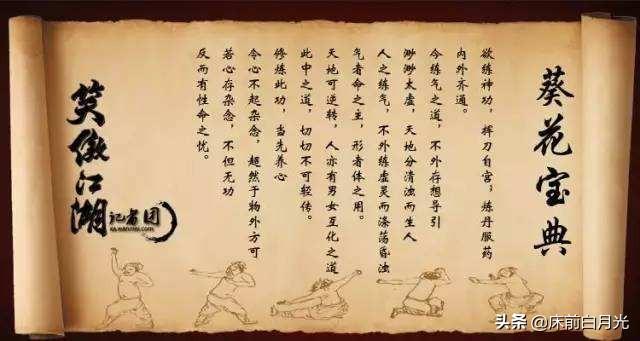 葵花宝典
欲练神功，挥刀自宫；炼丹服药
内外齐通。
今练气之道，不外存想导引
渺渺太虚，天地分清浊而生人
人之练气，不外练虚灵而涤荡昏浊
气者命之主，形者体之用。
天地可逆转，人亦有男女互化之道
此中之道，切切不可轻传。
修炼此功，当先养心
令心不起杂念，超然于物外方可
若心存杂念，不但无功
反而有性命之忧。
笑傲江湖
记者团
头条 @床前白月光